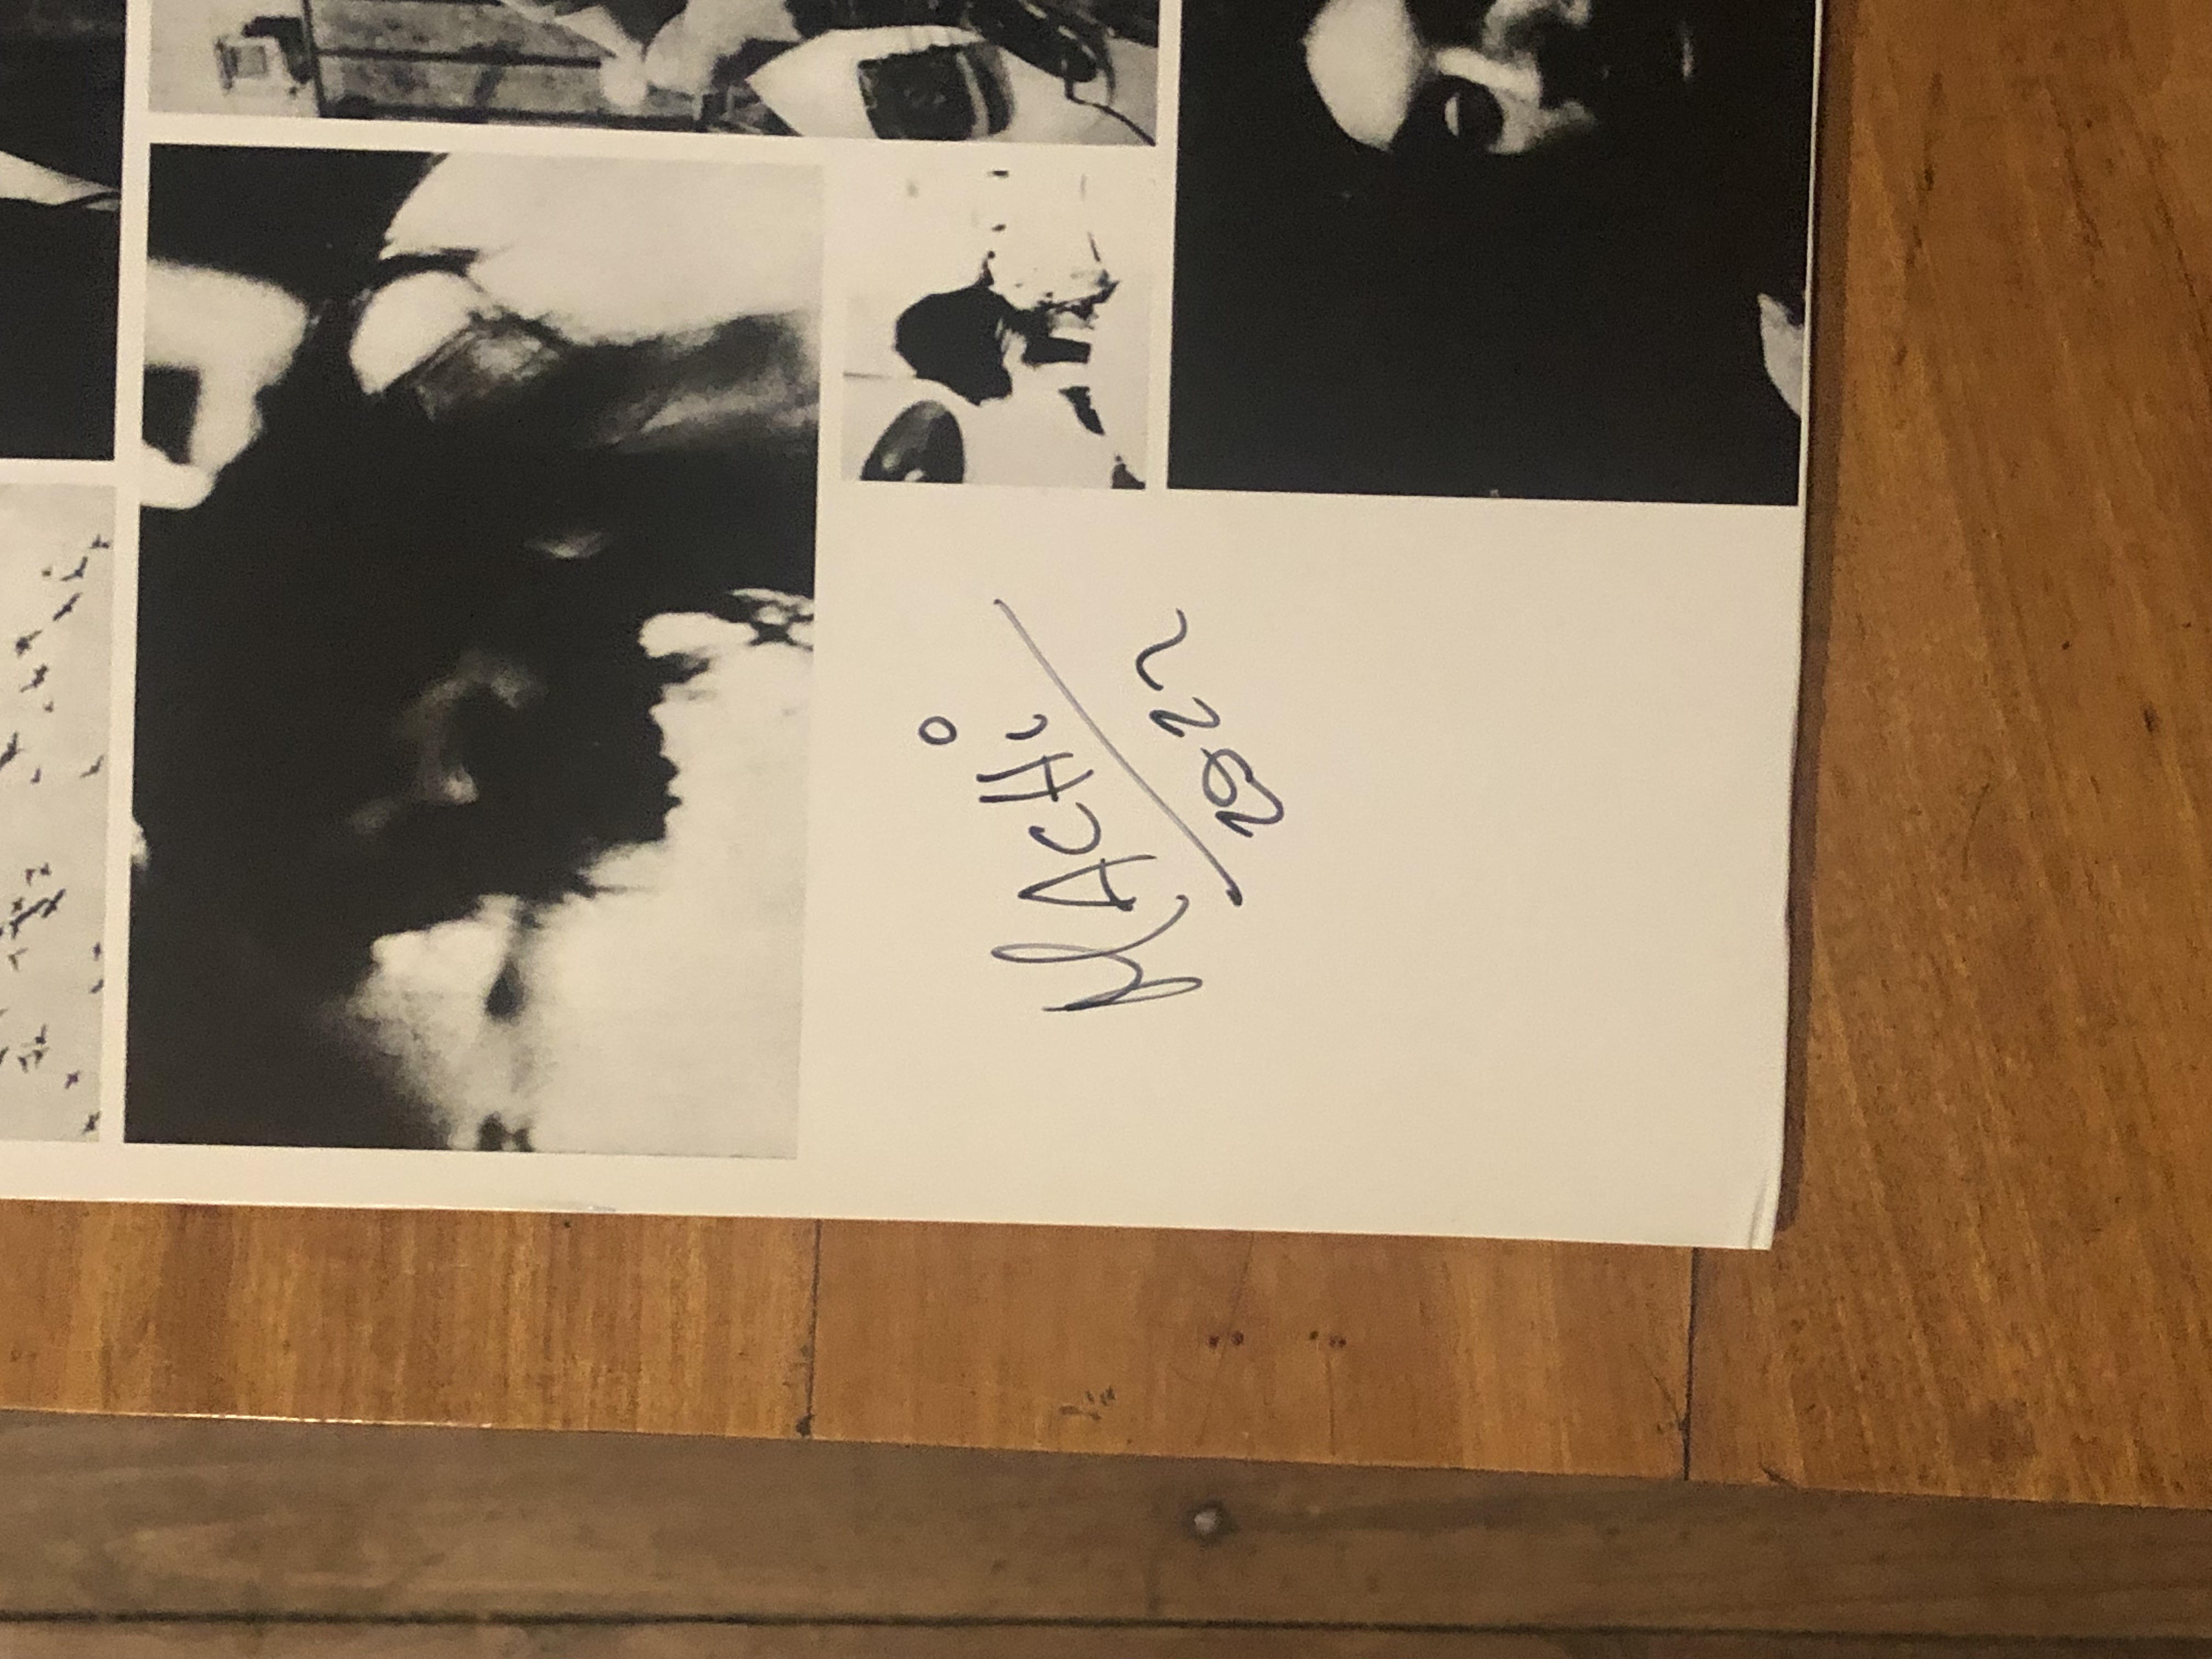 MACHi
2022